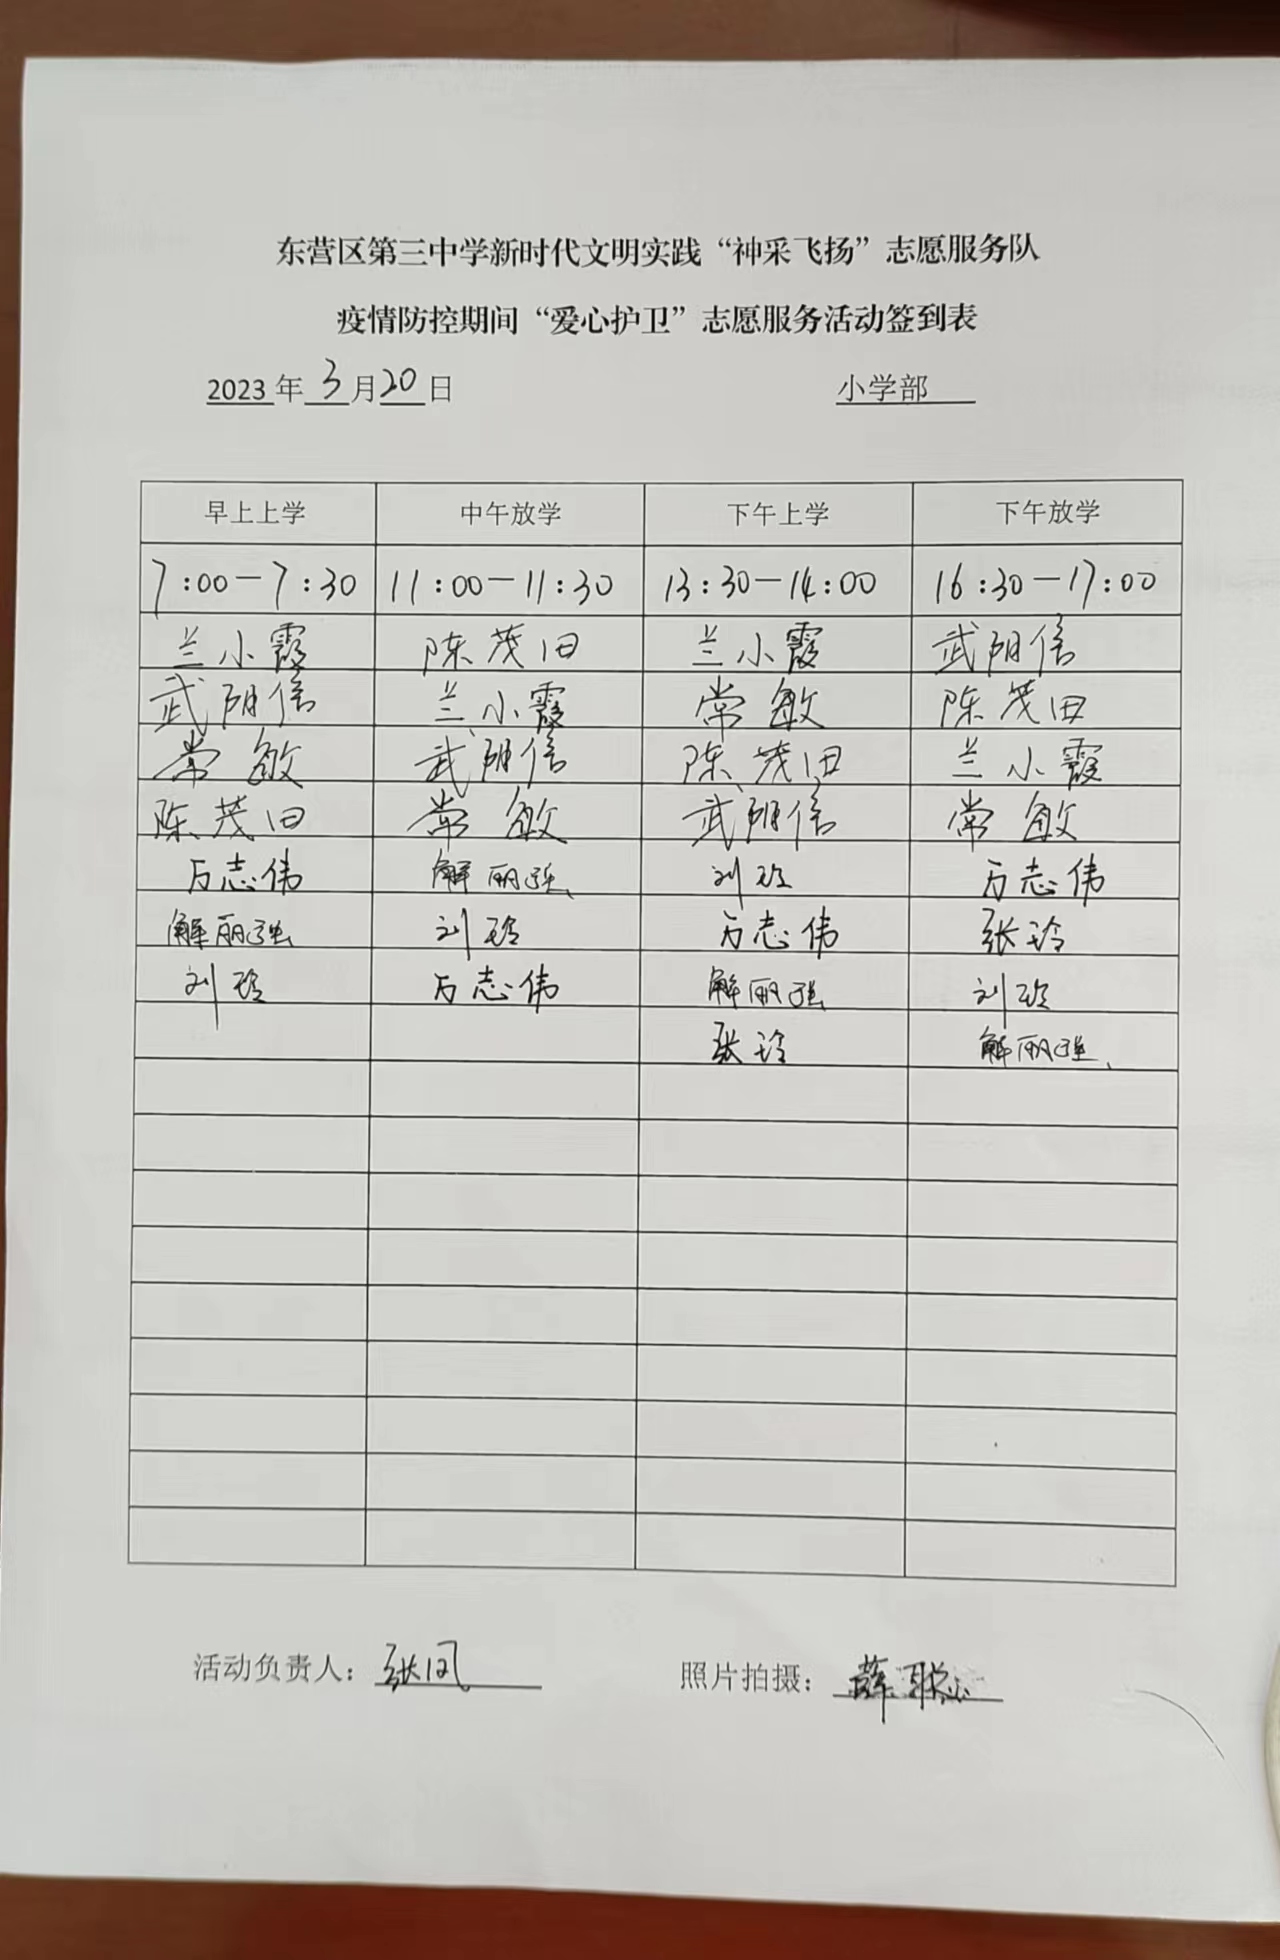 东营区第三中学新时代文明实践“神采飞扬”志愿服务队
疫情防控期间“爱心护卫”志愿服务活动签到表
2023 年 3 月 20 日 小学部
早上上学 中午放学 下午上学 下午放学
7:00-7:30 11:00-11:30 13:30-14:00 16:30-17:00
兰小霞 陈茂田 兰小霞 武阴信
武阴信 兰小霞 常敏 陈茂田
常敏 武阴信 陈茂田 兰小霞
陈茂田 常敏 武阴信 常敏
万志伟 解丽 刘玲 万志伟
解丽 刘玲 万志伟 张玲
刘玲 万志伟 解丽 刘玲
张玲 解丽
活动负责人：张凤 照片拍摄：薛聪